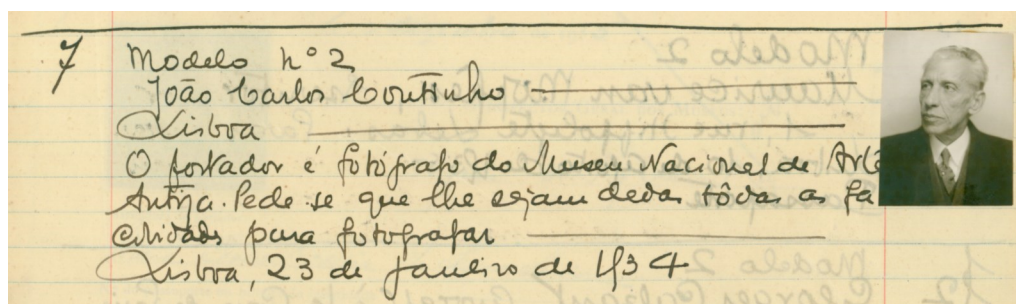 7 Modelo nº 2
João Carlos Coutinho
Lisboa
O portador é fotógrafo do Museu Nacional de Arte
Antiga. Pede-se que lhe sejam dadas tôdas as fa
cilidades para fotografar
Lisboa, 23 de janeiro de 1934